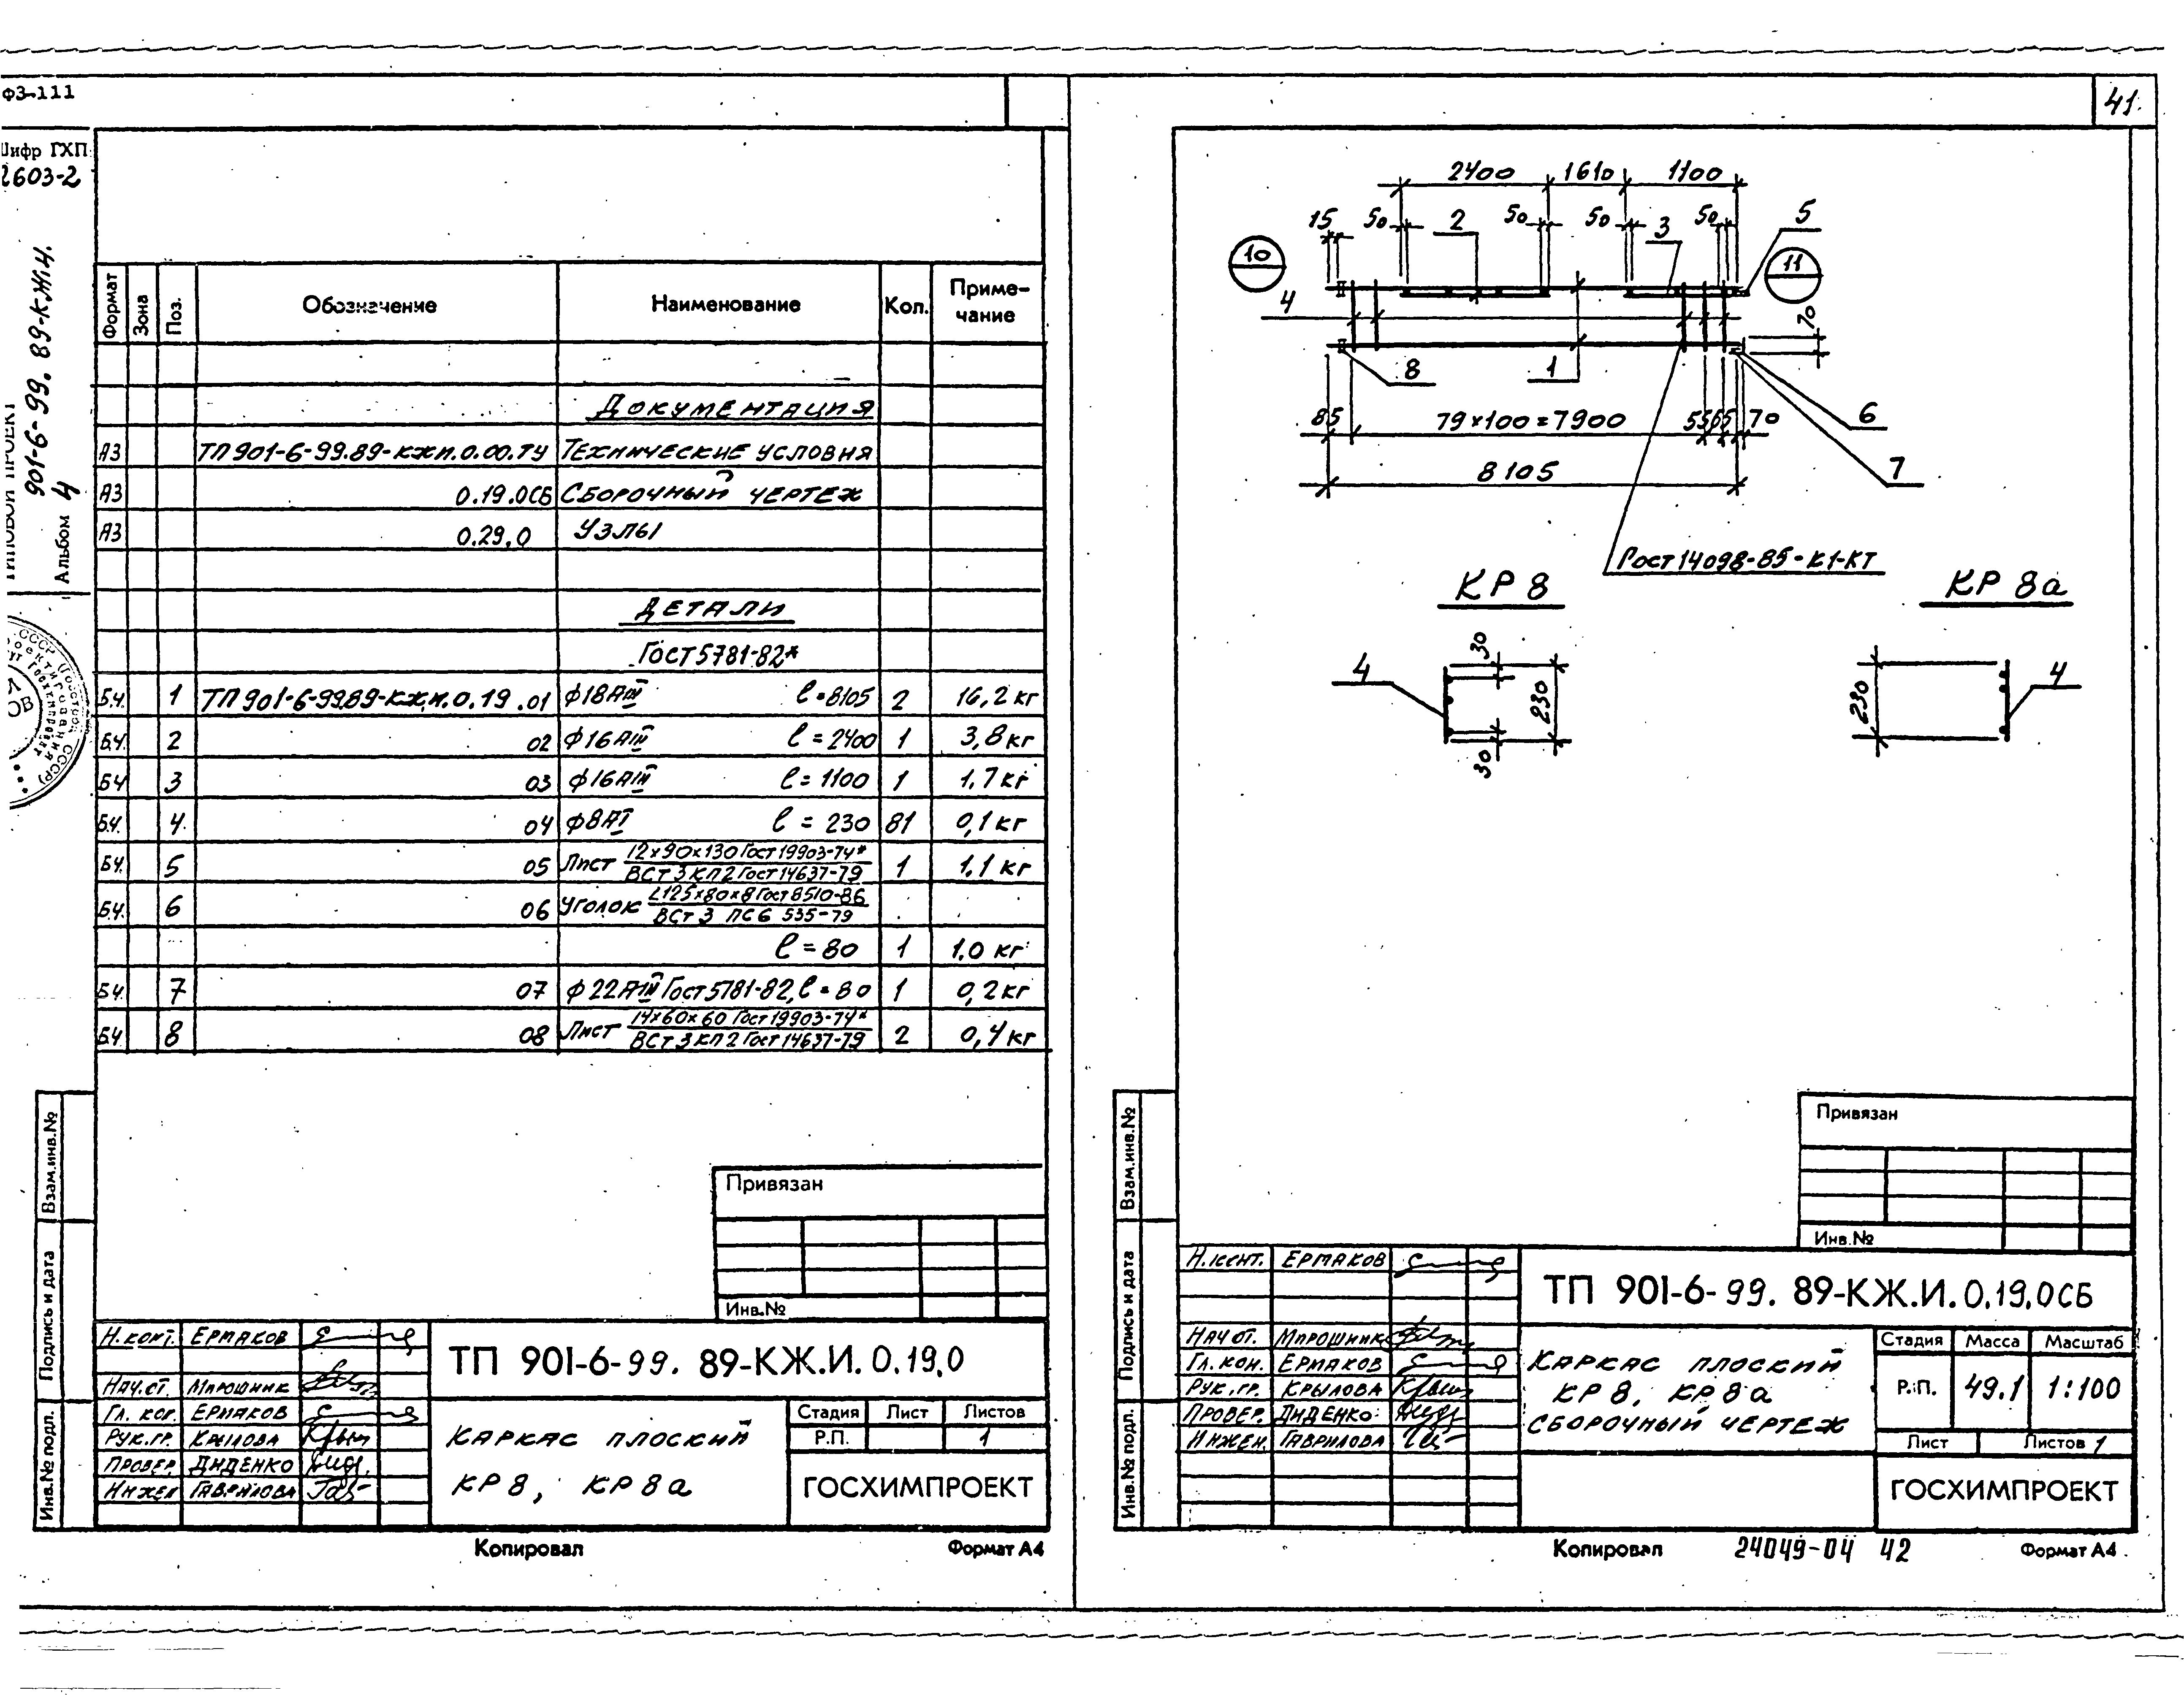 ФЗ-111
Шифр ГХП
2603-2
901-6-99.89-КЖИ.
Альбом 4
Формат Зона Поз. Обозначение Наименование Кол. Приме-
чание
Документация
А3 ТП 901-6-99.89-кжи.0.00.ТУ Технические условия
А3 0.19.0СБ Сборочный чертеж
А3 0.29.0 Узлы
Детали
Гост 5781-82*
Б.Ч. 1 ТП 901-6-99.89-кж.и.0.19.01 ф18АIII ℓ=8105 2 16,2 кг
Б.Ч. 2 02 ф16АIII ℓ=2400 1 3,8 кг
БЧ 3 03 ф16АIII ℓ=1100 1 1,7 кг
Б.Ч. 4 04 ф8АI ℓ=230 81 0,1 кг
Б.Ч. 5 05 Лист 12×90×130 Гост 19903-74* 1 1.1 кг
ВСт 3 кп 2 Гост 14637-79
Б.Ч. 6 06 Уголок L125×80×8 Гост 8510-86
ВСт 3 пс 6 535-79
ℓ=80 1 1.0 кг
Б.Ч. 7 07 ф22АIII Гост 5781-82, ℓ=80 1 0,2 кг
Б.Ч. 8 08 Лист 14×60×60 Гост 19903-74* 2 0,4 кг
ВСт 3 кп 2 Гост 14637-79
Привязан
Инв.№
Взам.инв.№
Подпись и дата
Инв.№ подл.
Н.конт. Ермаков
Нач.от. Мирошник
Гл. кон. Ермаков
Рук.гр. Крылова
Провер. Диденко
Инжен Гаврилова
ТП 901-6-99.89-КЖ.И.0.19.0
Каркас плоский
КР 8, КР 8а
Стадия Лист Листов
Р.П. 1
ГОСХИМПРОЕКТ
Копировал Формат А4
41.
2400 1610 1100
15 50 2 50 50 3 50 5
10 11
4 70
8 1 6
85 79×100=7900 55 65 70
8105 7
Гост 14098-85-К1-КТ
КР 8 КР 8а
4 30 230 30
230 4
Привязан
Инв.№
Взам.инв.№
Подпись и дата
Инв.№ подл.
Н.конт. Ермаков
Нач от. Мирошник
Гл. кон. Ермаков
Рук.гр. Крылова
Провер. Диденко
Инжен. Гаврилова
ТП 901-6-99.89-КЖ.И.0.19.0СБ
Каркас плоский
КР 8, КР 8а
Сборочный чертеж
Стадия Масса Масштаб
Р.П. 49.1 1:100
Лист Листов 1
ГОСХИМПРОЕКТ
Копировал 24049-04 42 Формат А4